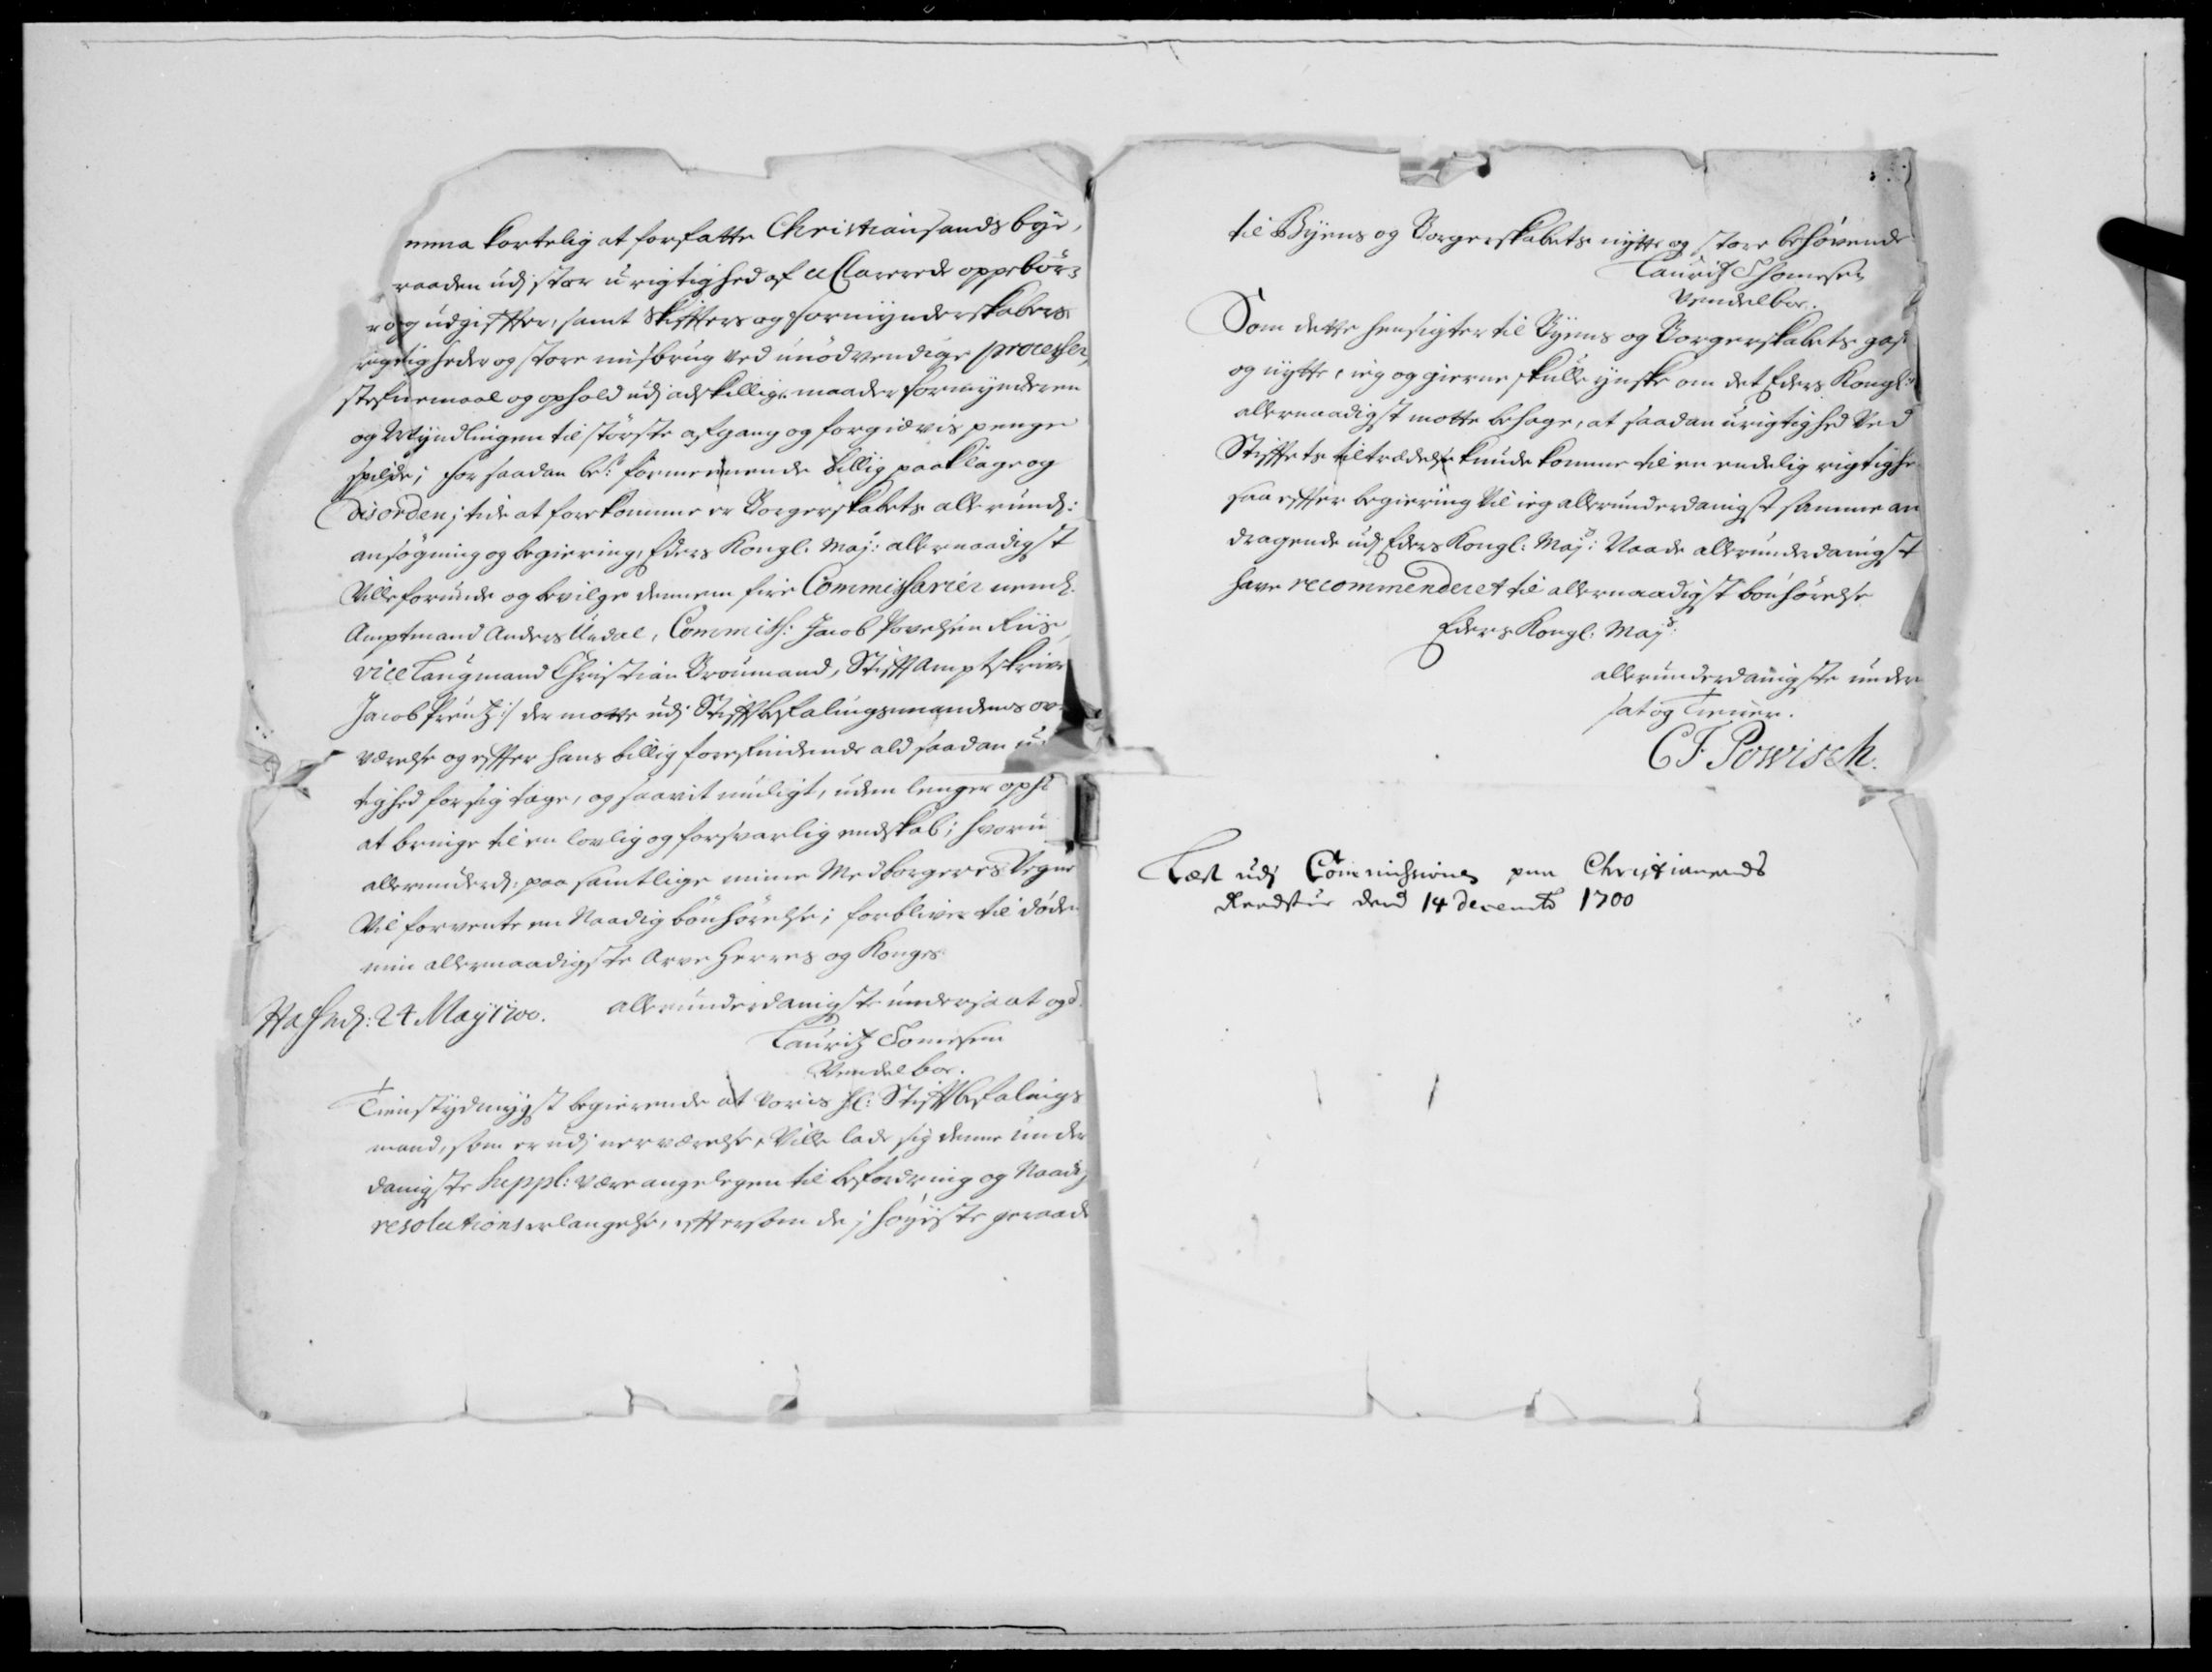 mma kortelig at forfatte Christiansands bye,
raaden udj stor urigtighed af uClarerede oppebør-
r og udgiffter, samt Skiffters og formynderskabers
rigtigheder og store misbrug ved unødvendige processer,
stefnemaal og ophold udj adskillige maader formynderen
og Myndlingen til største afgang og forgiævis penge
spilde; for saadan be: formeenende billig paaklage og
disorden; tide at forekomme er Borgerskabets allerund:
ansøgning og begiering, Eders Kongl. Maj: allernaadigst
Ville forunde og bevilge dennem fire Commissarier neml.
Amptmand Anders Undal, Commiss: Jacob Povelsen Riise,
vice Laugmand Christian Broumand, Stifft Ampt skriver
Jacob Prentz :/ der motte udj Stifftbefalingsmandens ov-
værelse og effter hans billig forefindende ald saadan u
tighed for sig tage, og saavit muligt, uden lenger opho
at bringe til en lovlig og forsvarlig endskab; hvoru
allerunderd: paa samtlige mine Medborgeres Vegne
Vil forvente en Naadig bønhørelse; forbliver til døden
min allernaadigste Arve Herres og Konges
Hafnd: 24 May 1700. allerunderdanigste undersaat og
Lauritz Tomesen
Vendelboe.
Tienstydmygst begierende at voris hl: Stifftbefalings
mand, som er udj nerværelse, Ville lade sig denne under
danigste suppl: være angelegen til befordring og Naadig
resolutions erlangelse, effter som det j høyiste geraade
til Byens og Borgerskabets nytte og store behøvende
Lauritz Thomesen
Vendelboe.
Som dette hensigter til Byens og Borgerskabets gaf
og nytte, ieg og gierne skulle ynske om det Eders Kongl:
allernaadigst motte behage, at saadan urigtighed Ved
Stiffets tiltrædelse kunde komme til en endelig rigtighe
saa effter begiering Vil ieg allerunderdanigst samme an
dragende udj Eders Kongl: Maj: Naade allerunderdanigst
have recommenderet til allernaadigst bønhørelse
Eders Kongl: Maj:
allerunderdanigste under
sat og Tiener.
CF Powisch.
Læst udj Commissionen paa Christiansands
Raadstue dend 14 decembr 1700